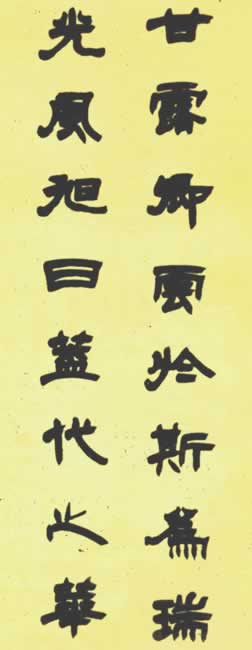 甘露卿雲於斯爲瑞
光風旭日蓋代之華